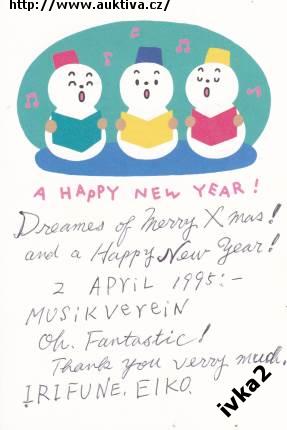 http://www.auktiva.cz/
A HAPPY NEW YEAR!
Dreames of Merry Xmas!
and a Happy New Year!
2 APRIL 1995:-
MUSIKVEREIN
Oh. Fantastic!
Thank you verry much.
IRIFUNE. EIKO.
ivka2